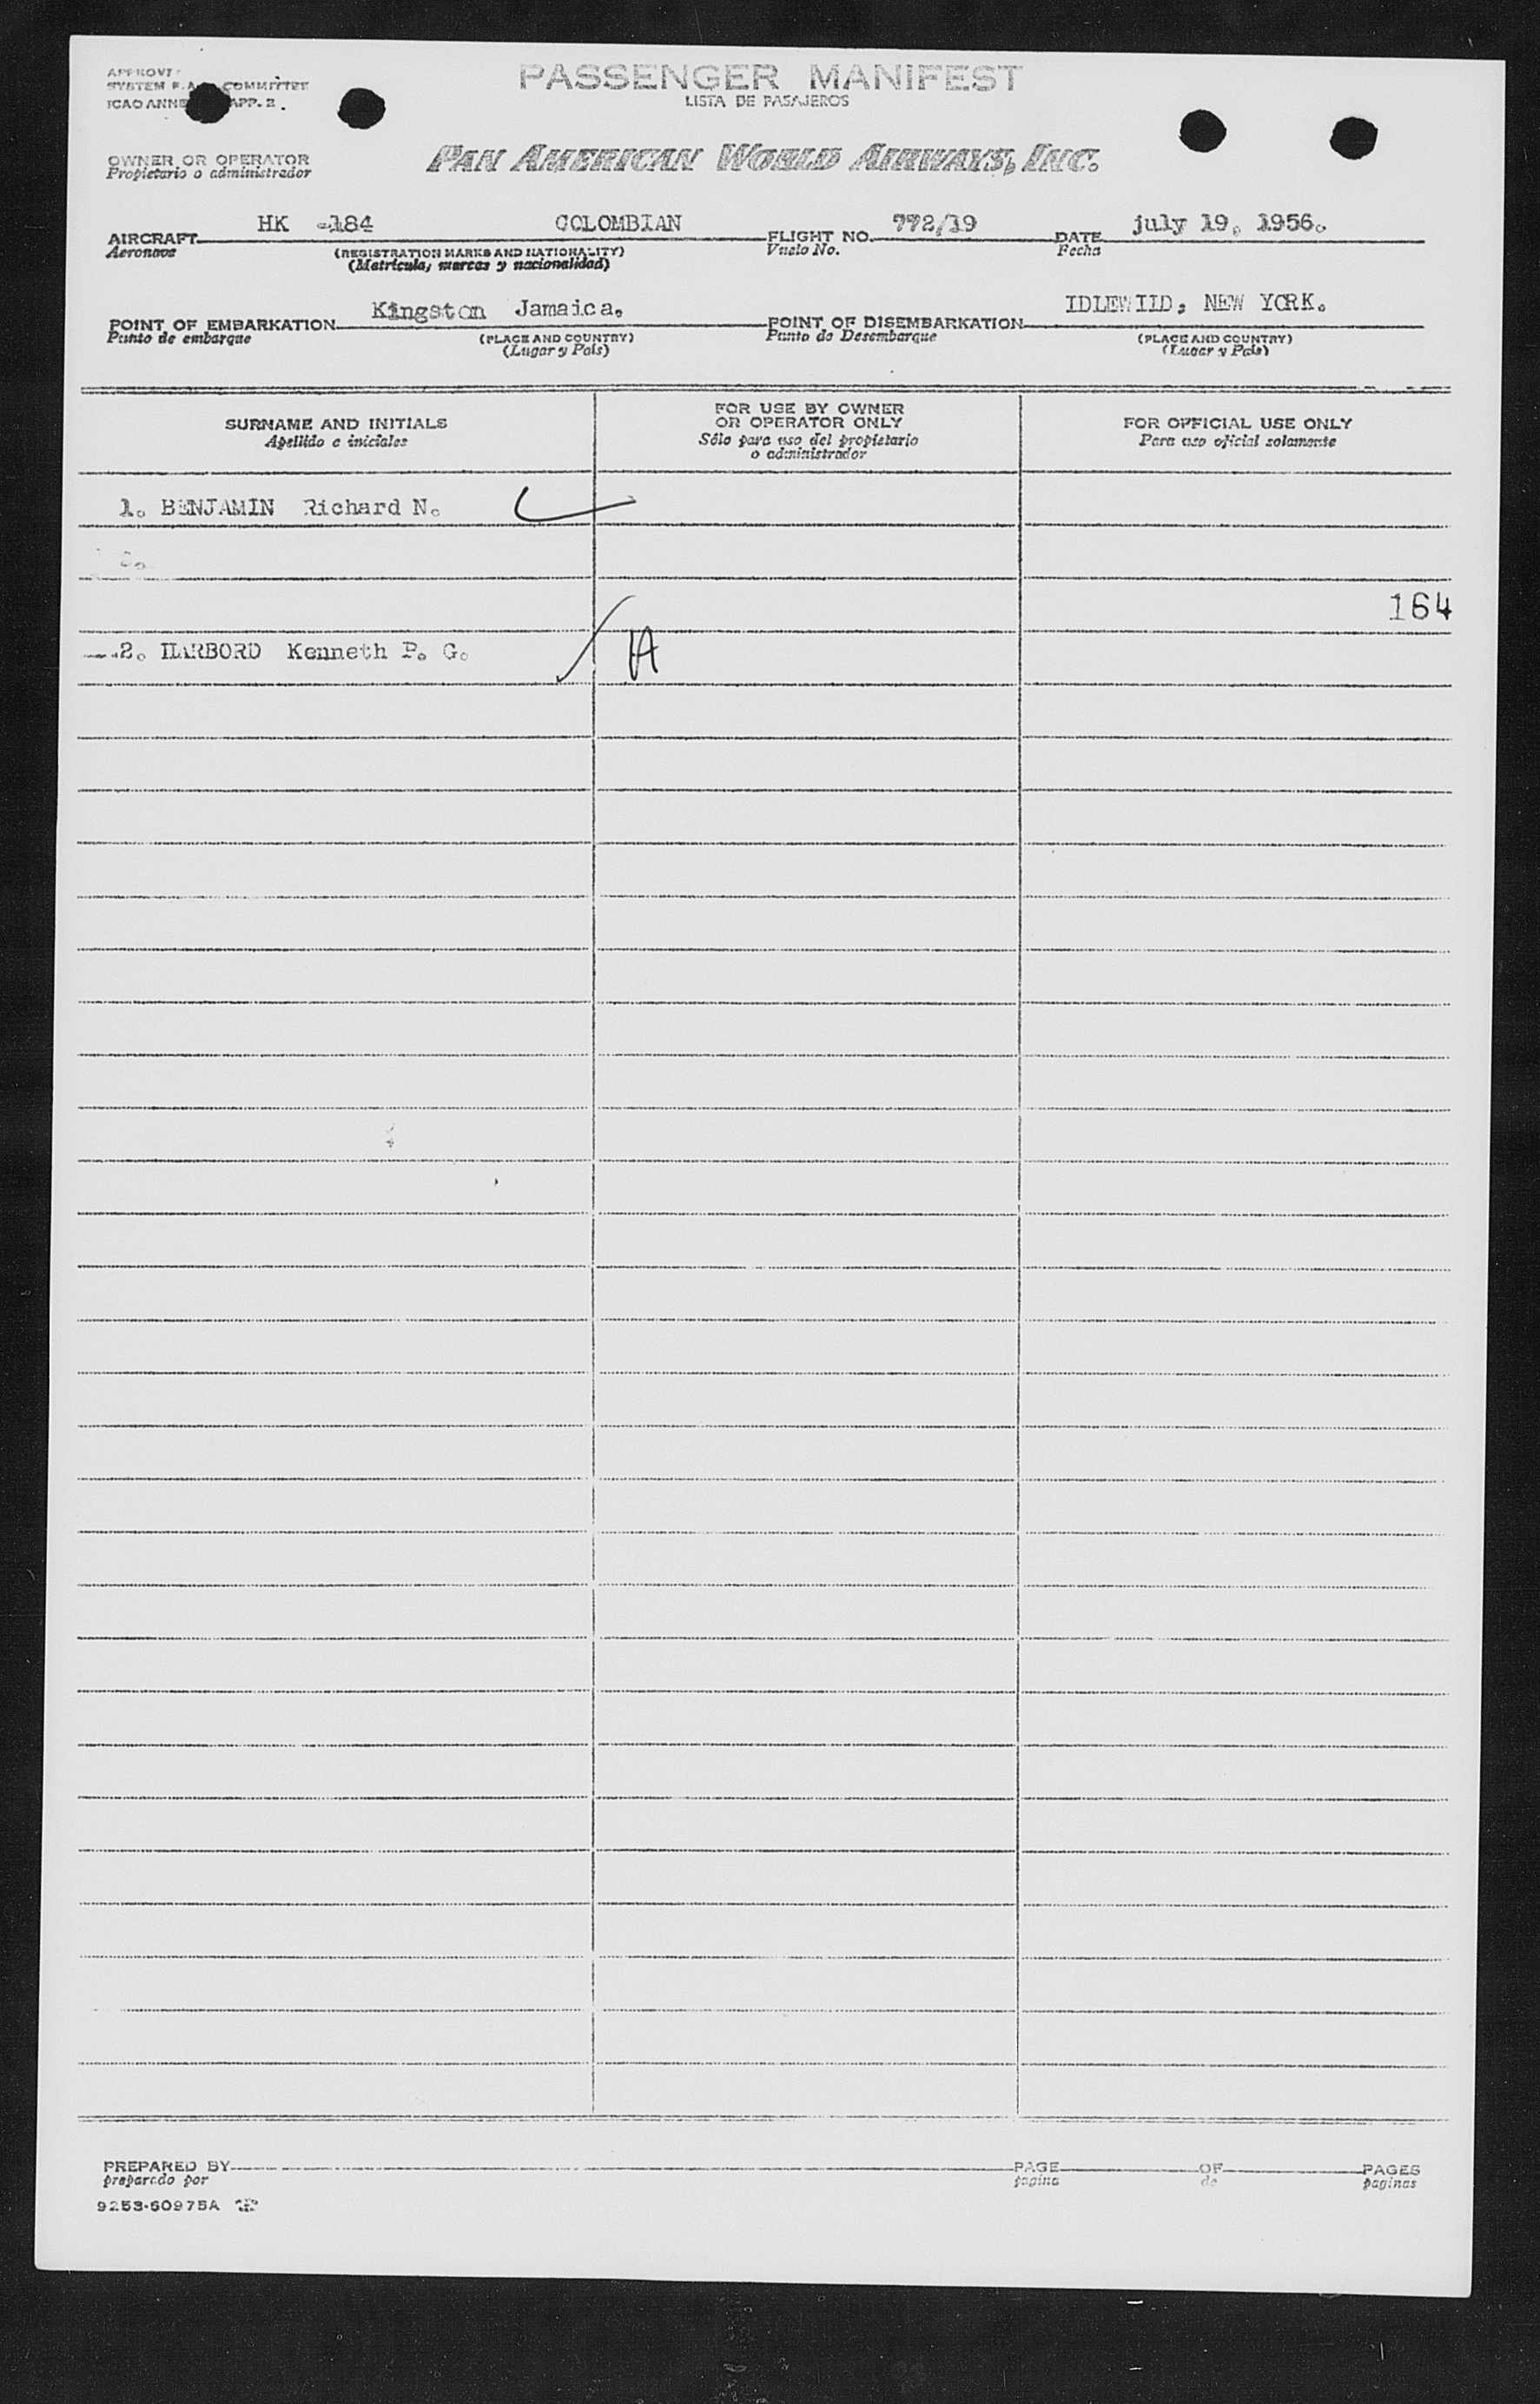 PASSENGER MANIFEST
LISTA DE PASAJEROS
SYSTEM COMMITTEE
ICAO APP. 2.
OWNER OR OPERATOR
Propietario o administrador
PAN AMERICAN WORLD AIRWAYS, INC.
AIRCRAFT HK -184 COLOMBIAN FLIGHT NO. 772/19 DATE july 19, 1956.
Aeronave (REGISTRATION MARKS AND NATIONALITY) Vuelo No. Fecha
(Matrícula, marcas y nacionalidad)
POINT OF EMBARKATION Kingston Jamaica. POINT OF DISEMBARKATION IDLEWILD, NEW YORK.
Punto de embarque (PLACE AND COUNTRY) Punto de Desembarque (PLACE AND COUNTRY)
(Lugar y País) (Lugar y País)
SURNAME AND INITIALS
Apellido e iniciales
FOR USE BY OWNER
OR OPERATOR ONLY
Sólo para uso del propietario
o administrador
FOR OFFICIAL USE ONLY
Para uso oficial solamente
1. BENJAMIN Richard N.
164
2. HARBORD Kenneth P. G. A
PREPARED BY PAGE OF PAGES
preparado por pagina de paginas
9253-60975A